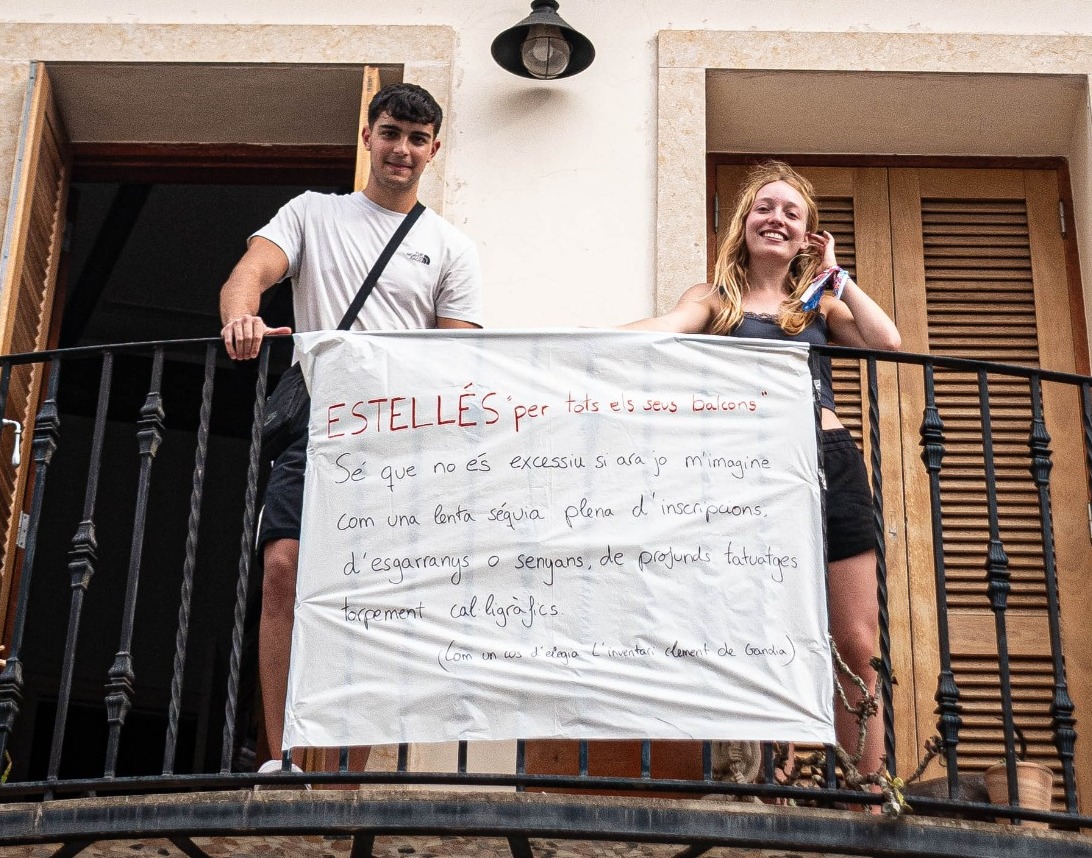 THE NORTH FACE
ESTELLÉS "per tots els seus balcons"
Sé que no és excessiu si ara jo m'imagine
com una lenta séquia plena d'inscripcions,
d'esgarranys o senyans, de profunds tatuatges
torpement cal·ligràfics.
(Com un cos d'elegia L'inventari clement de Gandia)